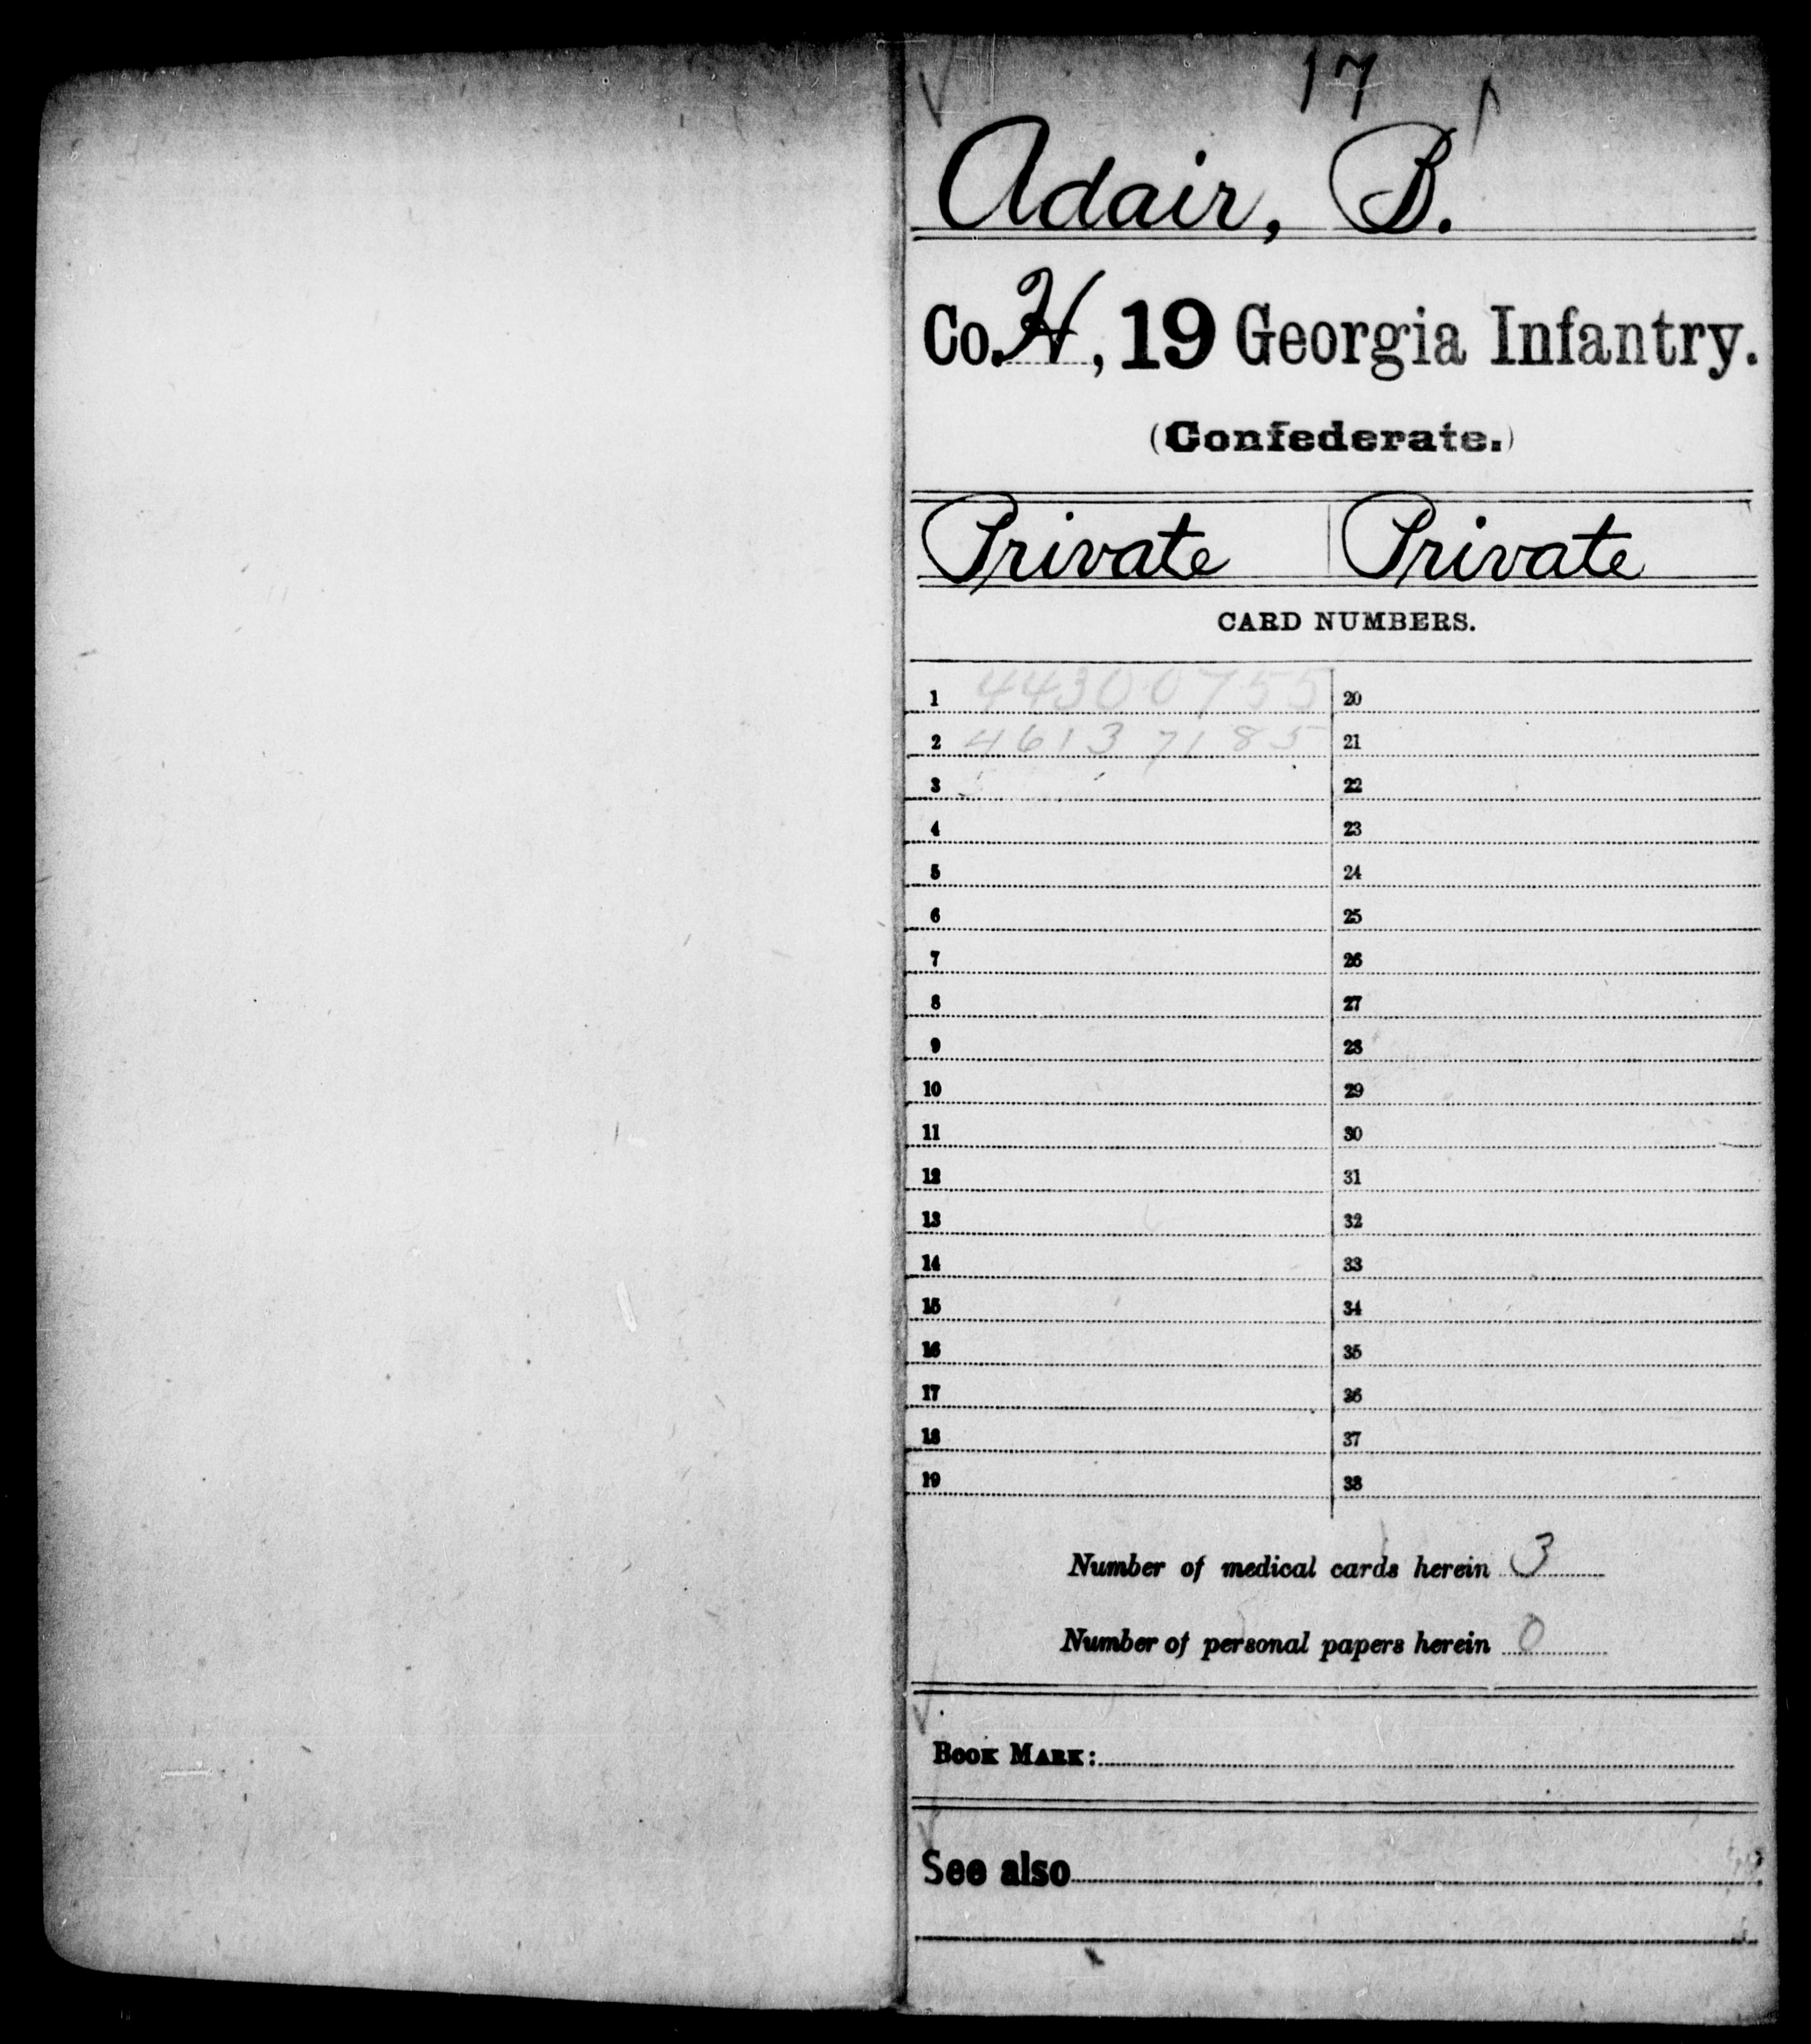 17
Adair, B.
Co. H, 19 Georgia Infantry.
(Confederate.)
Private Private
CARD NUMBERS.
1 44300755 20
2 46137185 21
3 22
4 23
5 24
6 25
7 26
8 27
9 28
10 29
11 30
12 31
13 32
14 33
15 34
16 35
17 36
18 37
19 38
Number of medical cards herein 3
Number of personal papers herein 0
BOOK MARK:
See also